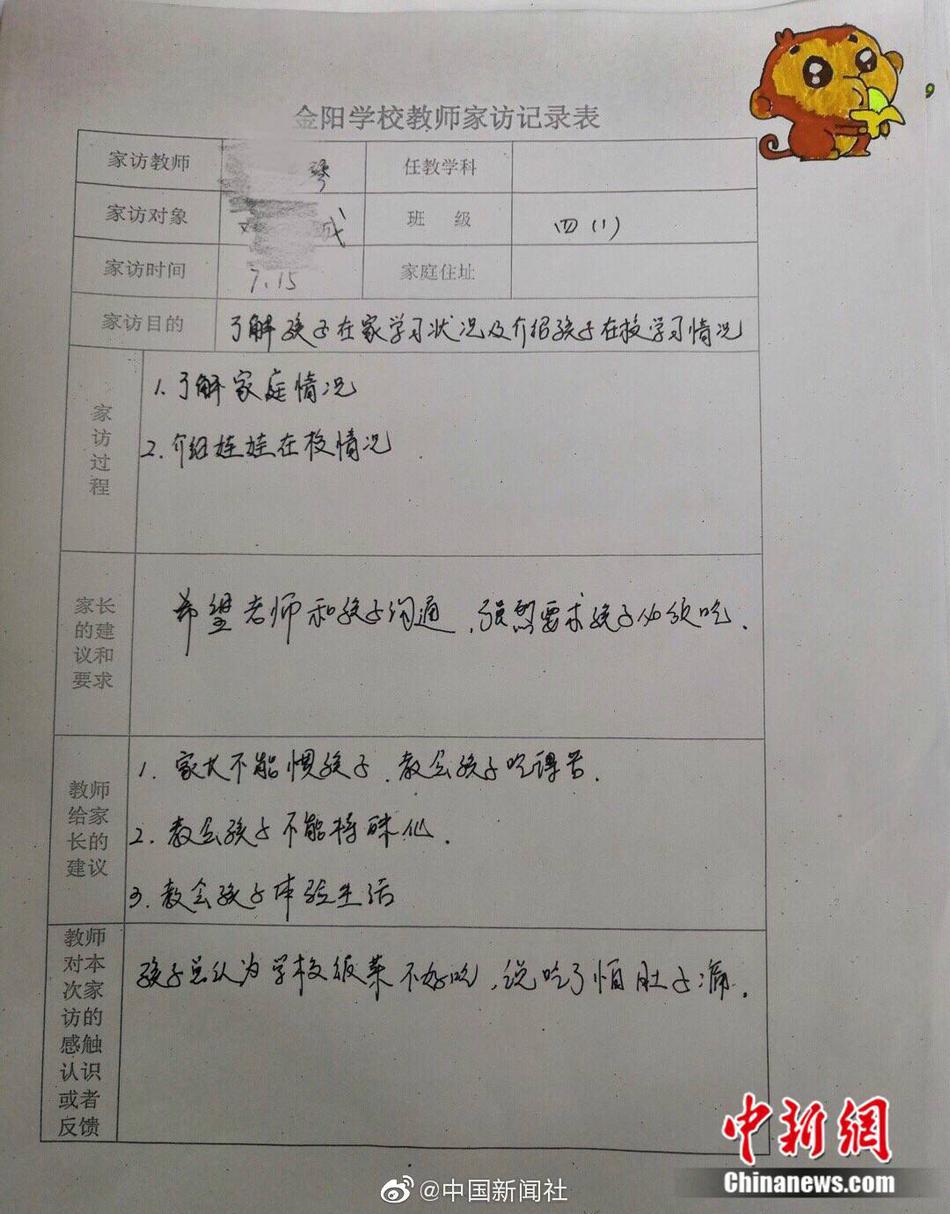 金阳学校教师家访记录表
家访教师 琴 任教学科
家访对象 成 班 级 四(1)
家访时间 7.15 家庭住址
家访目的 了解孩子在家学习状况及介绍孩子在校学习情况
家访过程
1.了解家庭情况
2.介绍娃娃在校情况
家长的建议和要求
希望老师和孩子沟通,强烈要求孩子必须吃.
教师给家长的建议
1.家长不能惯孩子.教会孩子吃得苦.
2.教会孩子不能
3.教会孩子体验生活
教师对本次家访的感触认识或者反馈
孩子总认为学校饭菜不好吃,说吃了怕肚子痛.
中新网
Chinanews.com
@中国新闻社